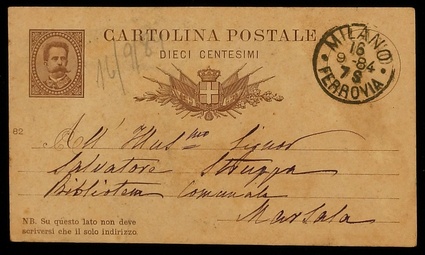 CARTOLINA POSTALE
DIECI CENTESIMI
16/9/8
MILANO
16
9-84
7S
FERROVIA
82
All' Illus.mo Signor
Salvatore Struppa
Biblioteca Comunale
Marsala
NB. Su questo lato non deve
scriversi che il solo indirizzo.